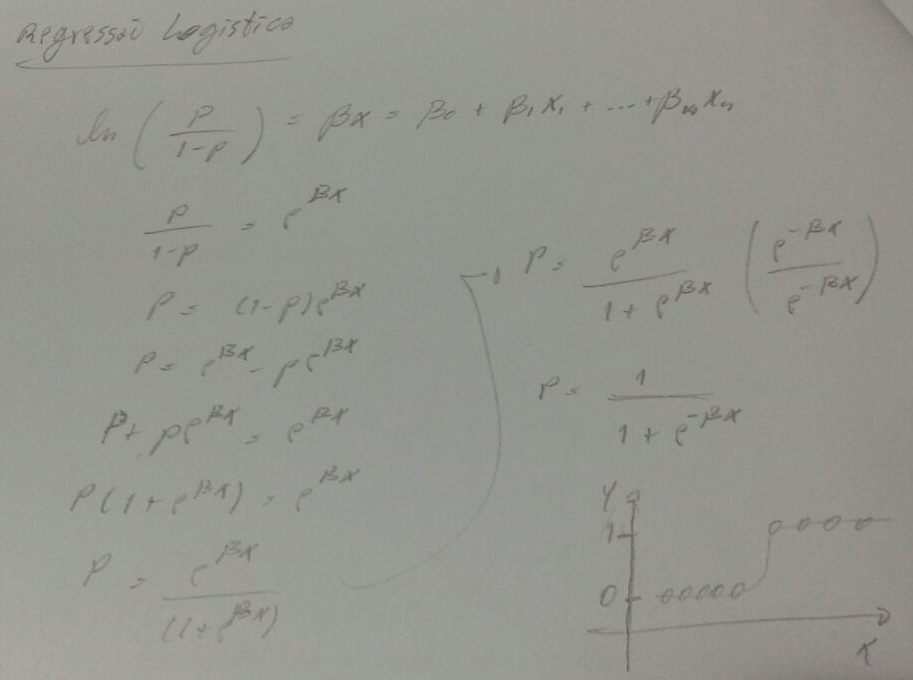 Regressão Logistica
ln(p/(1-p)) = βx = β₀ + β₁x₁ + ... + βₙxₙ
p/(1-p) = e^βx
p = (1-p)e^βx
p = e^βx - pe^βx
p + pe^βx = e^βx
p(1+e^βx) = e^βx
p = e^βx/(1+e^βx)
p = e^βx/(1+e^βx) (e^-βx/e^-βx)
p = 1/(1+e^-βx)
Y
1
0
X